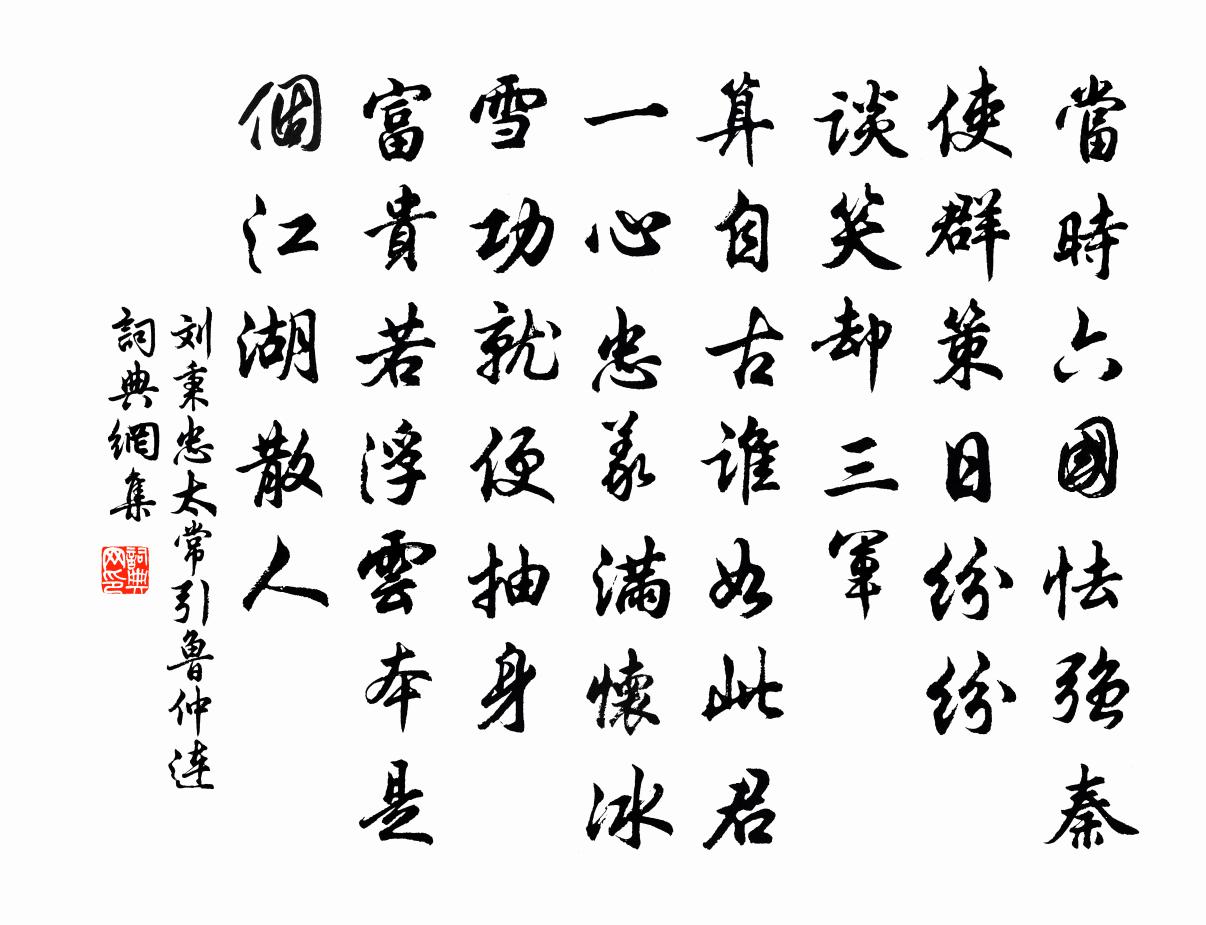 當時六國怯强秦
使群策日紛紛
談笑却三軍
算自古誰如此君
一心忠義滿懷冰
雪功就便抽身
富貴若浮雲本是
個江湖散人
刘秉忠太常引魯仲連
詞典網集
詞典网印